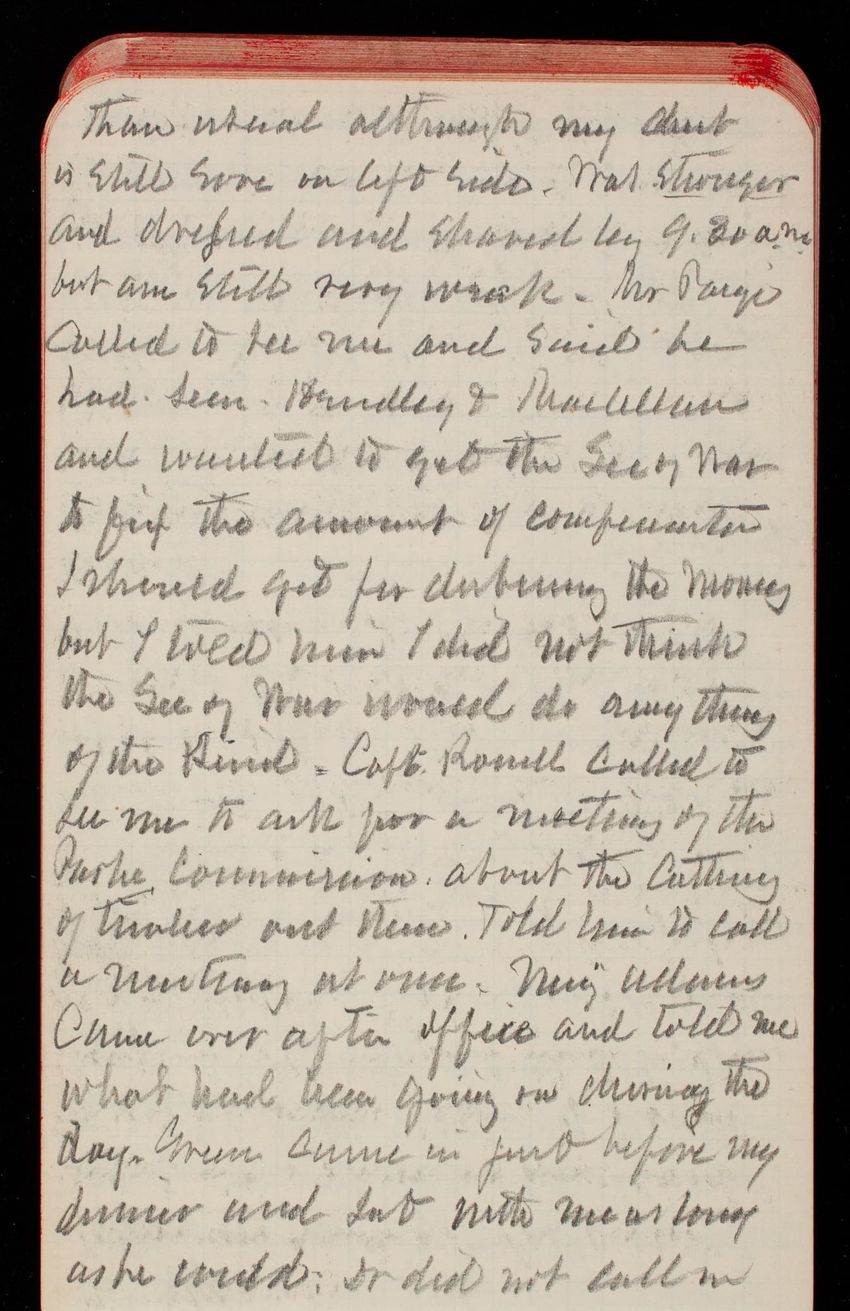 than usual although my chest
is still sore on left side. Was stronger
and dressed and shaved by 9.30 a.m.
but am still very weak - Mr Paige
Called to see me and said he
had seen Handley &
and wanted to get the Sec of War
to fix the amount of compensation
I should get for disbursing the money
but I told him I did not think
the Sec of War would do any thing
of the kind. Capt. Rowell called to
see me to ask for a meeting of the
Parke Commission. about the Cutting
of timber out there. Told him to call
a meeting at once. Maj Adams
Came over after office and told me
what had been going on during the
day. Green came in just before my
dinner and sat with me as long
as he could. Dr did not call in